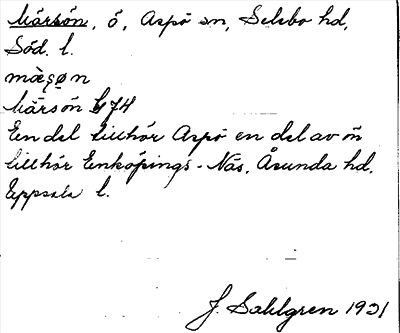 Märsön, ö, Aspö sn, Selebo hd,
Söd. l.
mæ̀ʂøn
Märsön G74
En del tillhör Aspö en del av ön
tillhör Enköpings-Näs, Åsunda hd,
Uppsala l.
J. Sahlgren 1921